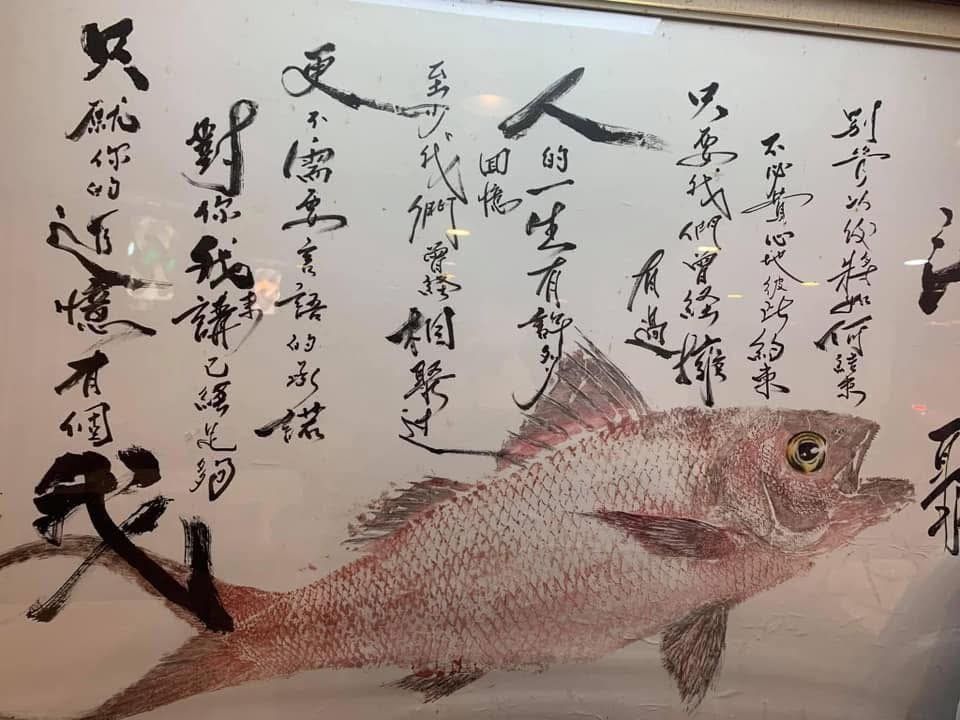 別管以後將如何結束
不必費心地彼此約束
只要我們曾經擁
有過
人的一生有許多
回憶
至少我們曾經相聚過
更不需要言語的承諾
對你我來講已經足夠
只願你的追憶有個我